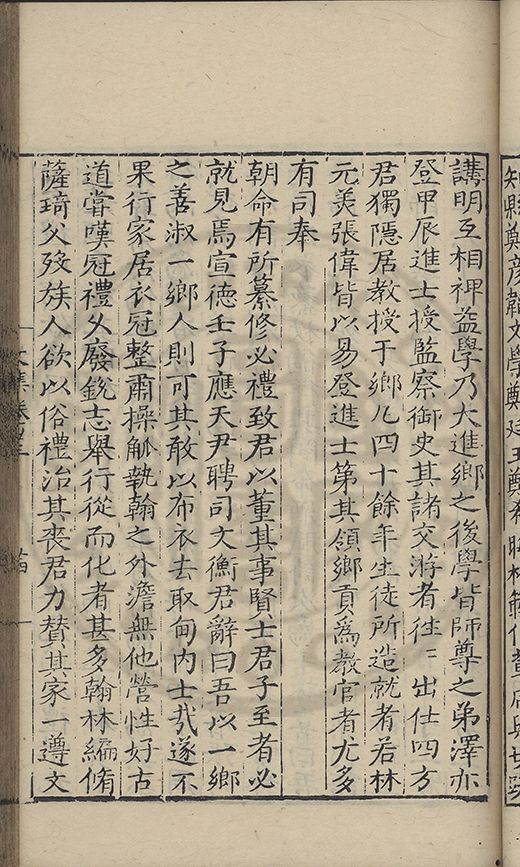 知縣鄭彥韜文學鄭廷玉鄭
講明互相裨益學乃大進鄉之後學皆師尊之弟澤亦
登甲辰進士授監察御史其諸交游者徃〻出仕四方
君獨隱居教授于鄉凢四十餘年生徒所造就者若林
元羙張偉皆以易登進士第其領鄉貢爲教官者尤多
有司奉
朝命有所纂修必禮致君以董其事賢士君子至者必
就見焉宣德壬子應天尹聘司文衡君辭曰吾以一鄉
之善淑一鄉人則可其敢以布衣去取甸内士㢤遂不
果行家居衣冠整肅操觚執翰之外澹無他營性好古
道嘗嘆冠禮乆廢銳志舉行從而化者甚多翰林編脩
薩琦父歿族人欲以俗禮治其喪君力賛其家一遵文